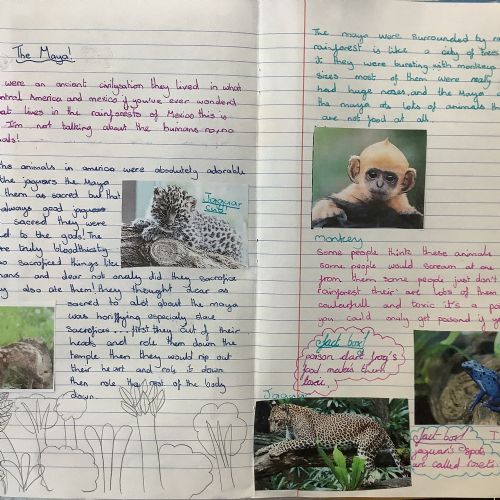 The Maya!
were an ancient civilysation they lived in what
ntral America and mexico if you've ever wonderd
at lives in the rainforests of Mexico this is
I'm not talking about the humans no, no
als!
the animals in america were absolutely adorable
the jaguars the Maya
them as sacred but that
always good jaguars
sacred they were
ed to the gods! The
re truly bloodthirsty
so sacrificed things like
mans and dear not onaly did they sacrifice
y also ate them! they thought dear as
sacred to alot about the maya
was horrifying especialy slave
Sacrifices.... first they cut of their
heads and role them down the
temple then they would rip out
their heart and role it down
then role the rest of the body
down.
Jaguar
cub!
The maya were surrounded by
rainforest is like a city of trees
it they were bursting with monkeys
sizes most of them were really
had huge noses, and the Maya
the maya ate lots of animals
are not food at all.
monkey
Some people think these animals
some people would scream at
from them some people just don't
rainforest their are lots of them
coulourfull and toxic it's a
you could only get poisond if
fact box!
poison dart frog's
food makes them
toxic.
Jaguar
fact box!
jaguar's spots
are called roset